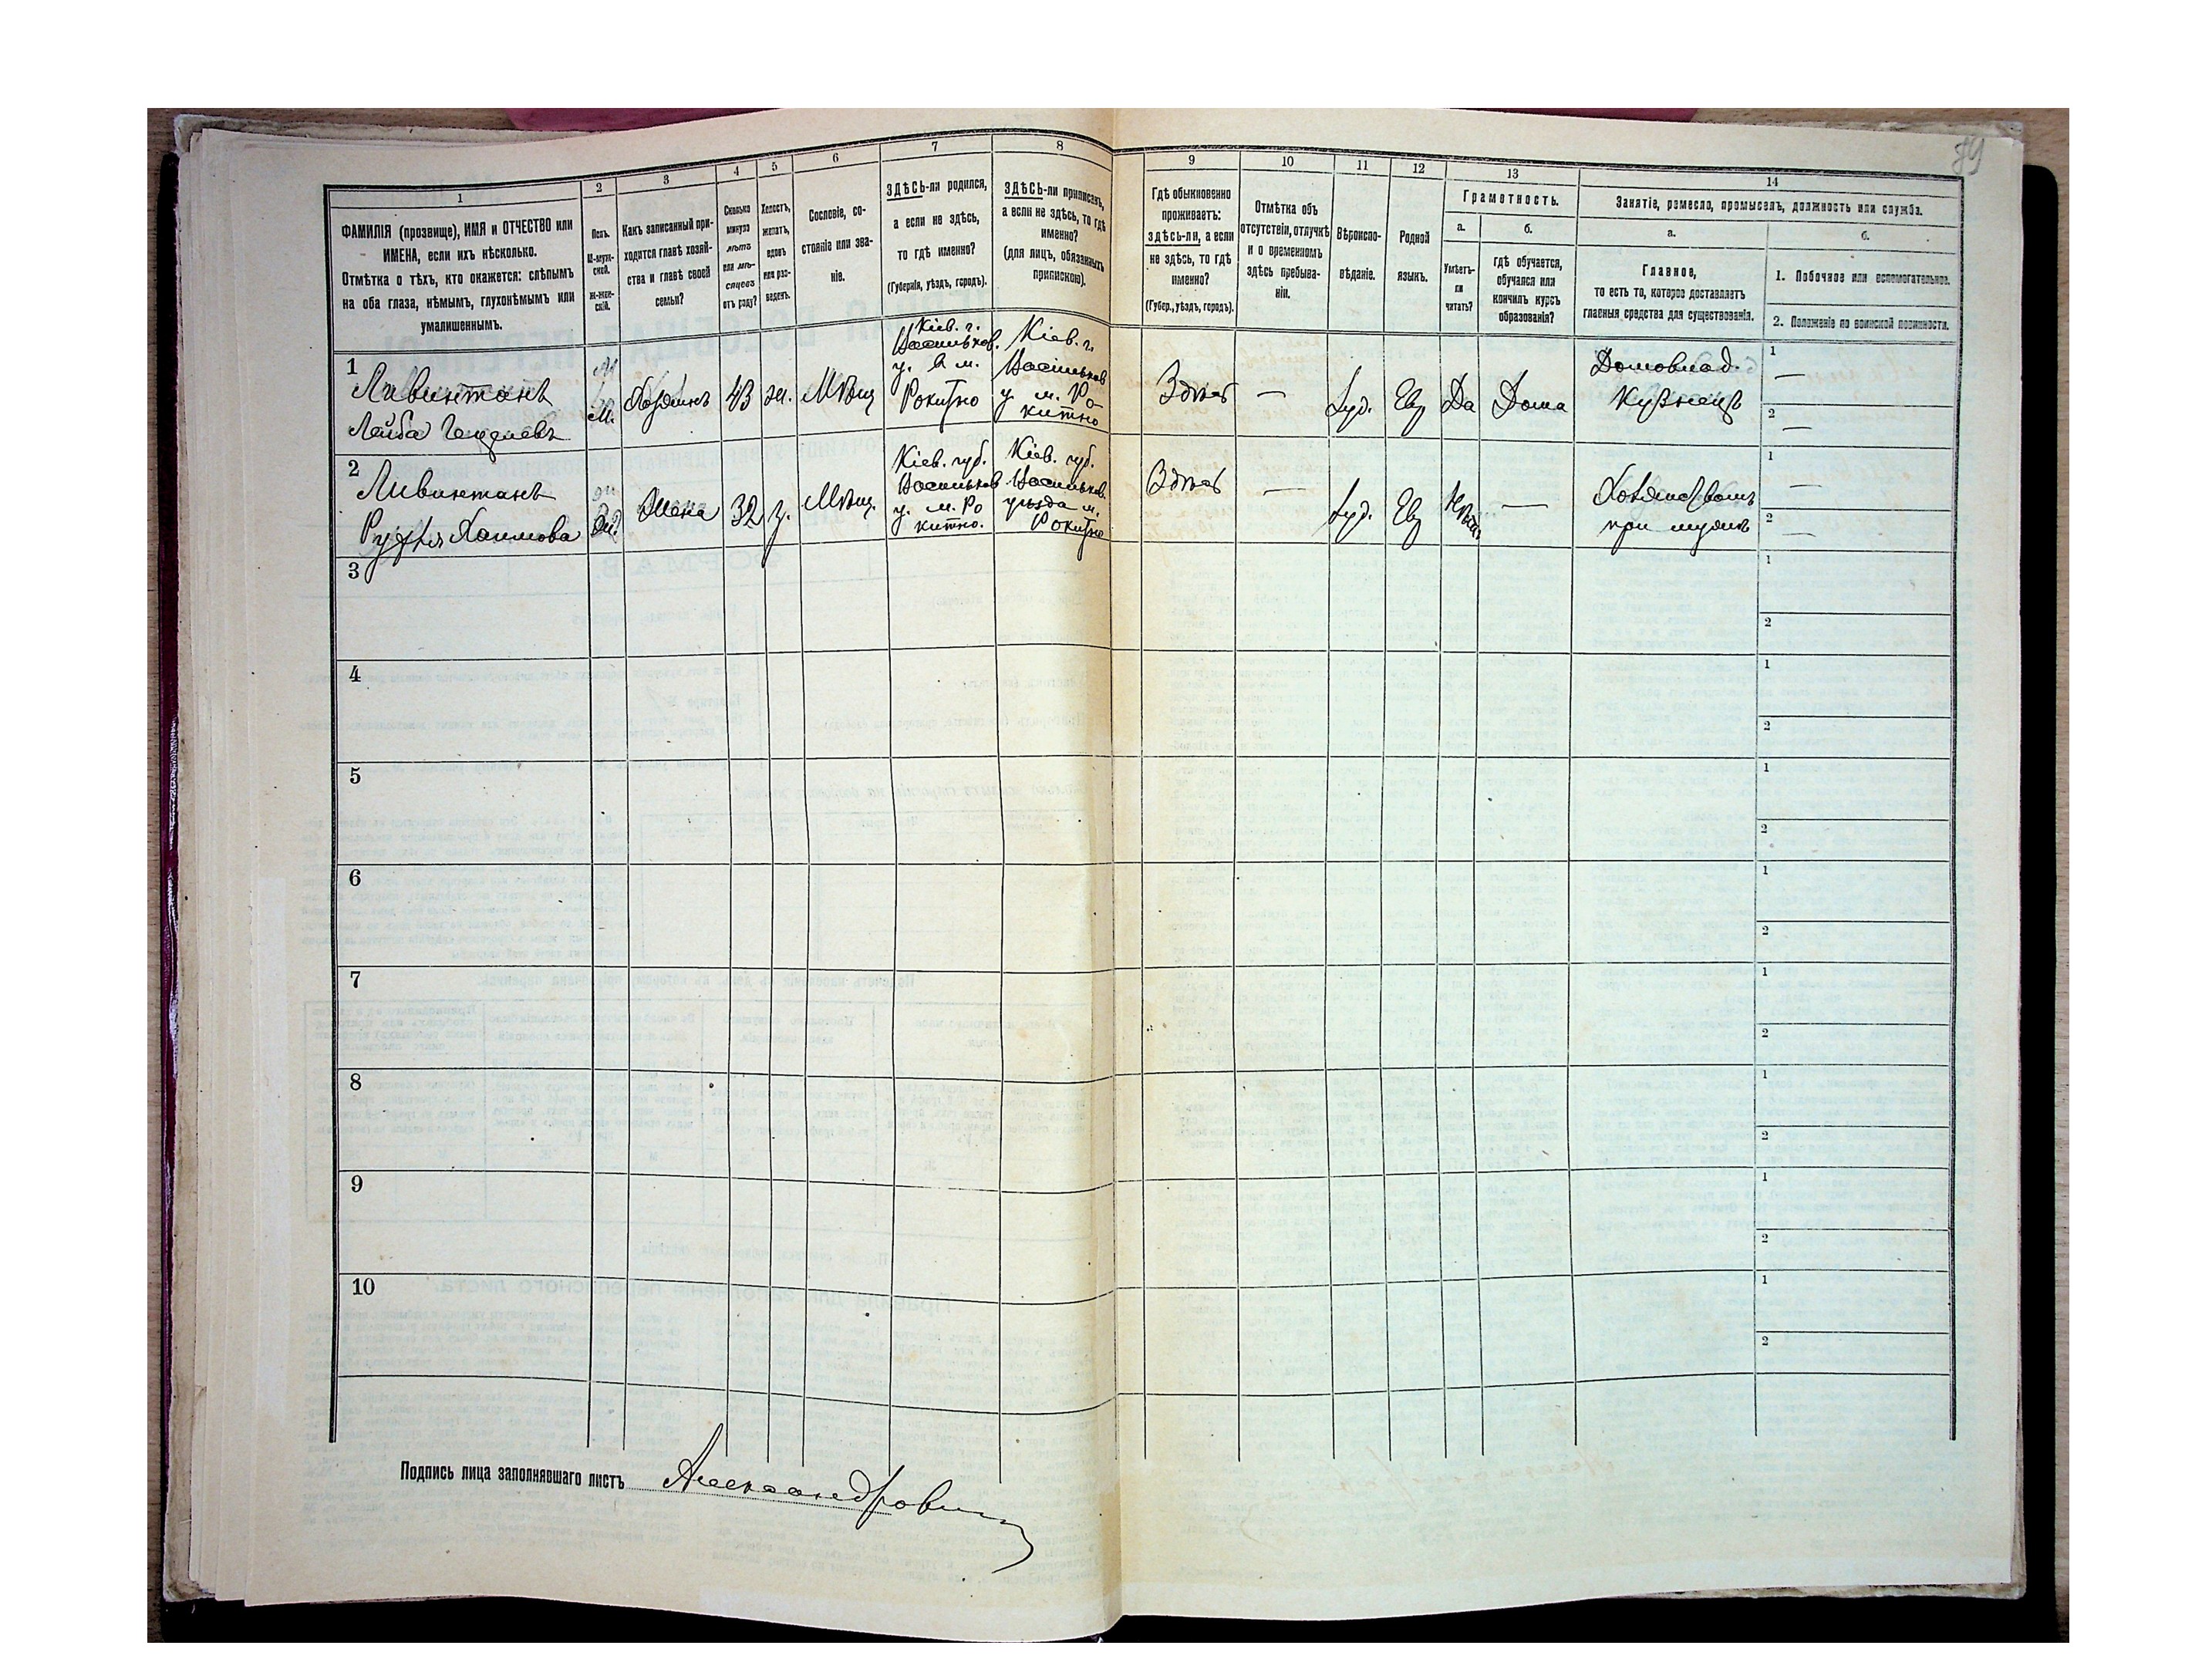 79
1
ФАМИЛІЯ (прозвище), ИМЯ и ОТЧЕСТВО или
ИМЕНА, если ихъ нѣсколько.
Отмѣтка о тѣхъ, кто окажется: слѣпымъ
на оба глаза, нѣмымъ, глухонѣмымъ или
умалишеннымъ.
2
Полъ.
М-муж-
ской.
Ж-жен-
скій.
3
Какъ записанный при-
ходится главѣ хозяй-
ства и главѣ своей
семьи?
4
Сколько
минуло
лѣтъ
или мѣ-
сяцевъ
отъ роду?
5
Холостъ,
женатъ,
вдовъ
или раз-
веденъ.
6
Сословіе, со-
стояніе или зва-
ніе.
7
ЗДѢСЬ-ли родился,
а если не здѣсь,
то гдѣ именно?
(Губернія, уѣздъ, городъ).
8
ЗДѢСЬ-ли приписанъ,
а если не здѣсь, то гдѣ
именно?
(для лицъ, обязанныхъ
припискою).
9
Гдѣ обыкновенно
проживаетъ:
здѣсь-ли, а если
не здѣсь, то гдѣ
именно?
(Губер., уѣздъ, городъ).
10
Отмѣтка объ
отсутствіи, отлучкѣ
и о временномъ
здѣсь пребыва-
ніи.
11
Вѣроиспо-
вѣданіе.
12
Родной
языкъ.
13
Грамотность.
а.
Умѣетъ-
ли
читать?
б.
гдѣ обучается,
обучался или
кончилъ курсъ
образованія?
14
Занятіе, ремесло, промыселъ, должность или служба.
а.
Главное,
то есть то, которое доставляетъ
главныя средства для существованія.
б.
1. Побочное или вспомогательное.
2. Положеніе по воинской повинности.
1
Ливинтанъ
Лейба
М
М.
Хозяинъ
43
жен.
Мѣщ
Кіев. г.
Васильков.
у. в м.
Рокитно
Кіев. г.
Васильков
у. м. Ро-
китно
Здѣсь
—
Іуд.
Евр
Да
Дома
Домовлад.
Кузнецъ
1
—
2
—
2
Ливинтанъ
Хаимова
Жена
32
з.
Мѣщ.
Кіев. губ.
Васильков
у. м. Ро
китно.
Кіев. губ.
Васильков.
уѣзда м.
Рокитно
Здѣсь
—
Іуд.
Евр
Нѣтъ
—
при мужѣ
1
—
2
—
3
1
2
4
1
2
5
1
2
6
1
2
7
1
2
8
1
2
9
1
2
10
1
2
Подпись лица заполнявшаго листъ Александрович